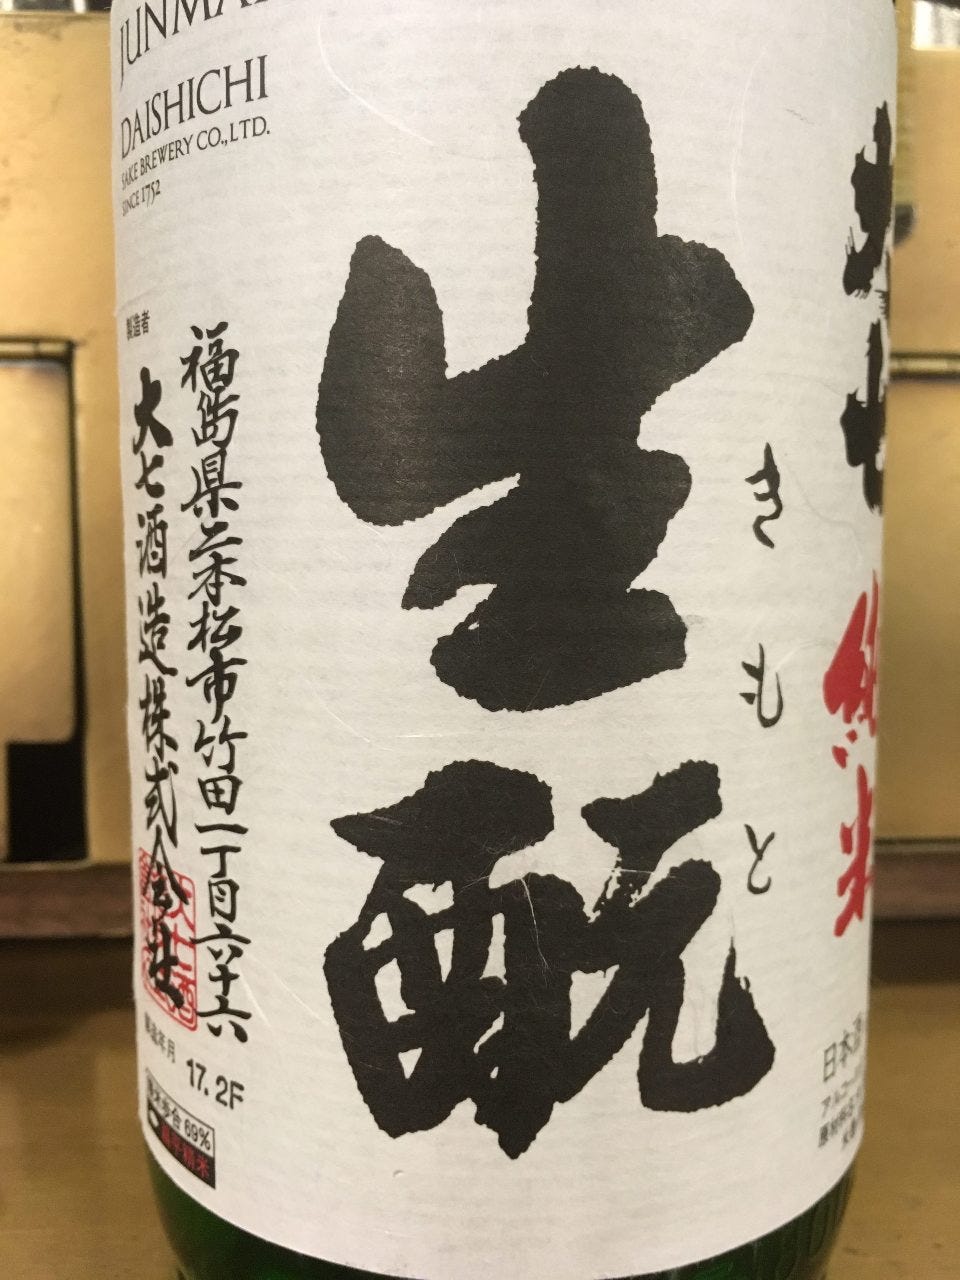 JUNMAI
DAISHICHI
SAKE BREWERY CO.,LTD.
SINCE 1752
大七
純米
きもと
生酛
福島県二本松市竹田一丁目六十六
製造者
大七酒造株式会社
製造年月 17.2F
精米歩合 69%
超扁平精米
日本酒